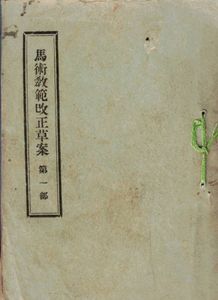 馬術教範改正草案 第一部